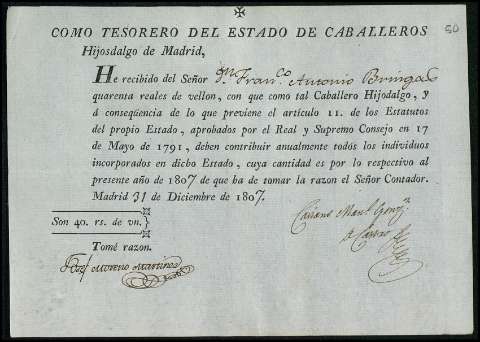 50
COMO TESORERO DEL ESTADO DE CABALLEROS
Hijosdalgo de Madrid,
He recibido del Señor Dn. Franco. Antonio Bringas
quarenta reales de vellon, con que como tal Caballero Hijodalgo, y
á conseqüencia de lo que previene el artículo 11. de los Estatutos
del propio Estado, aprobados por el Real y Supremo Consejo en 17
de Mayo de 1791, deben contribuir anualmente todos los individuos
incorporados en dicho Estado, cuya cantidad es por lo respectivo al
presente año de 1807 de que ha de tomar la razon el Señor Contador.
Madrid 31 de Diciembre de 1807.
Son 40. rs. de vn.
Tomé razon.
Moreno Martinez